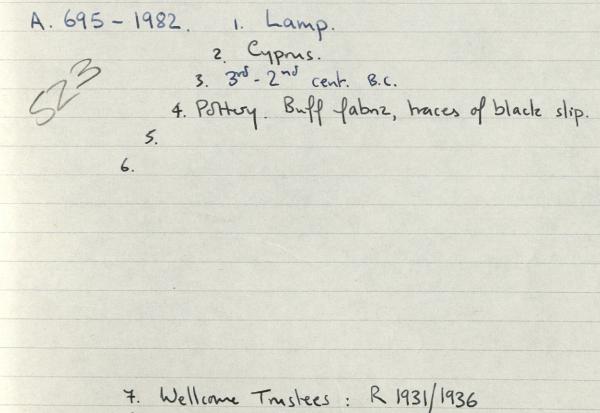 A. 695 - 1982. 1. Lamp.
2. Cyprus.
523
3. 3rd - 2nd cent. B.C.
4. Pottery. Buff fabric, traces of black slip.
5.
6.
7. Wellcome Trustees : R 1931/1936